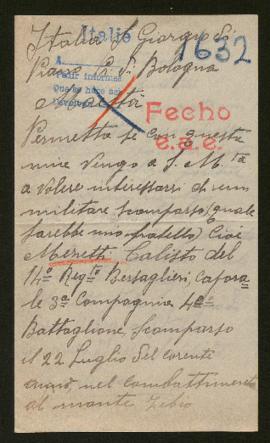 Italia
1632
Italia S. Giorgio Di
Piano P. di Bologna
A
Pedir informes
Que se hace así
Maestà
Fecho
e.a.e.
Permetta se con queste
mie vengo a S. M.tà
a volere interessarsi di un
militare scomparso (quale
sarebbe mio fratello) Cioè
Merett Calisto del
14º Reg.to Bersaglieri, Capora=
le 3ª Compagnia 4º=
Battaglione, Scomparso
il 22 Luglio del corente
anno, nel combattimento
al monte Zebio